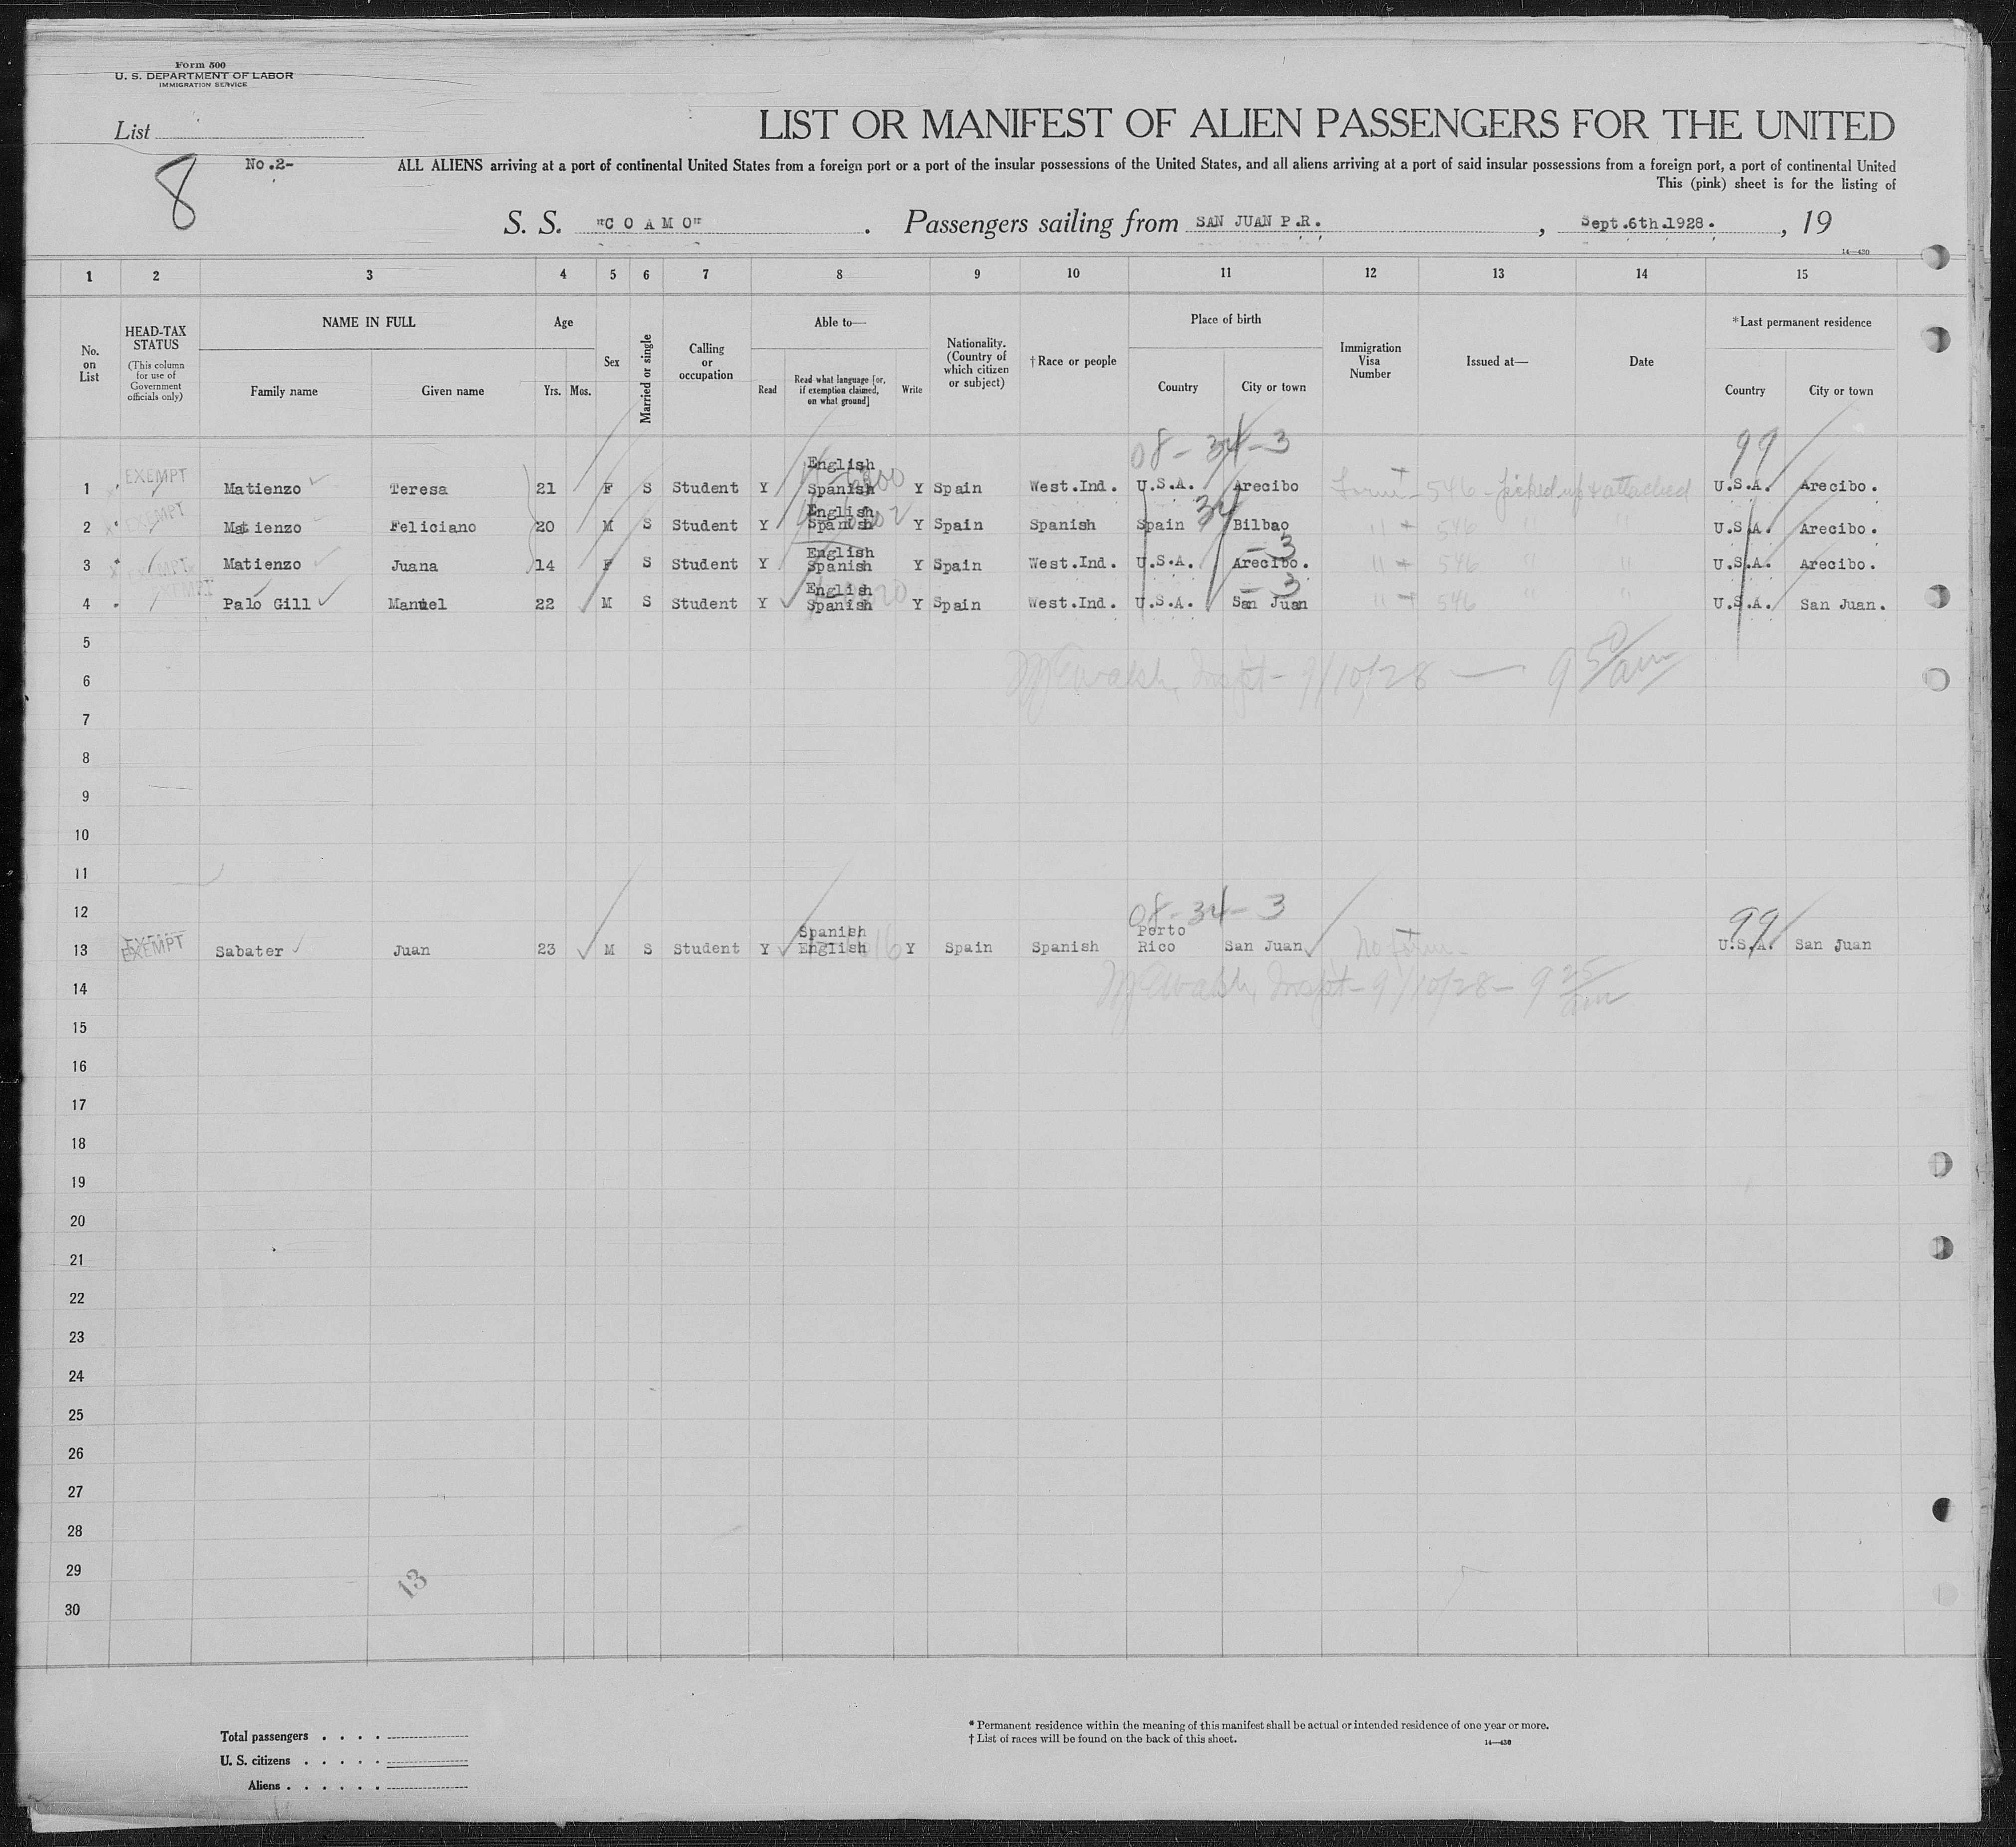 Form 500
U. S. DEPARTMENT OF LABOR
IMMIGRATION SERVICE
List
LIST OR MANIFEST OF ALIEN PASSENGERS FOR THE UNITED
8 No.2-
ALL ALIENS arriving at a port of continental United States from a foreign port or a port of the insular possessions of the United States, and all aliens arriving at a port of said insular possessions from a foreign port, a port of continental United
This (pink) sheet is for the listing of
S. S. "C O A M O". Passengers sailing from SAN JUAN P.R., Sept.6th.1928., 19
14—430
1 2 3 4 5 6 7 8 9 10 11 12 13 14 15
No. on List
HEAD-TAX STATUS
(This column for use of Government officials only)
NAME IN FULL
Family name Given name
Age
Yrs. Mos.
Sex
Married or single
Calling or occupation
Able to—
Read
Read what language [or, if exemption claimed, on what ground]
Write
Nationality. (Country of which citizen or subject)
†Race or people
Place of birth
Country City or town
Immigration Visa Number
Issued at—
Date
*Last permanent residence
Country City or town
08-34-3 99
1 EXEMPT Matienzo Teresa 21 F S Student Y English Spanish Y Spain West.Ind. U.S.A. Arecibo Form-546-picked up & attached U.S.A. Arecibo.
2 EXEMPT Matienzo Feliciano 20 M S Student Y English Spanish Y Spain Spanish Spain 34 Bilbao " 546 " U.S.A. Arecibo.
3 EXEMPT Matienzo Juana 14 F S Student Y English Spanish Y Spain West.Ind. U.S.A. -3 Arecibo. " 546 " " U.S.A. Arecibo.
4 EXEMPT Palo Gill Manuel 22 M S Student Y English Spanish Y Spain West.Ind. U.S.A. -3 San Juan " 546 " " U.S.A. San Juan.
5
6 Walsh, Inspt- 9/10/28 — 9 50/am
7
8
9
10
11
12 08-34-3 99
13 EXEMPT Sabater Juan 23 M S Student Y Spanish English Y Spain Spanish Porto Rico San Juan No form- U.S.A. San Juan
14 Walsh, Inspt- 9/10/28- 9 25/am
15
16
17
18
19
20
21
22
23
24
25
26
27
28
29
13
30
Total passengers . . . .
U. S. citizens . . . . .
Aliens . . . . . .
* Permanent residence within the meaning of this manifest shall be actual or intended residence of one year or more.
† List of races will be found on the back of this sheet.
14—430